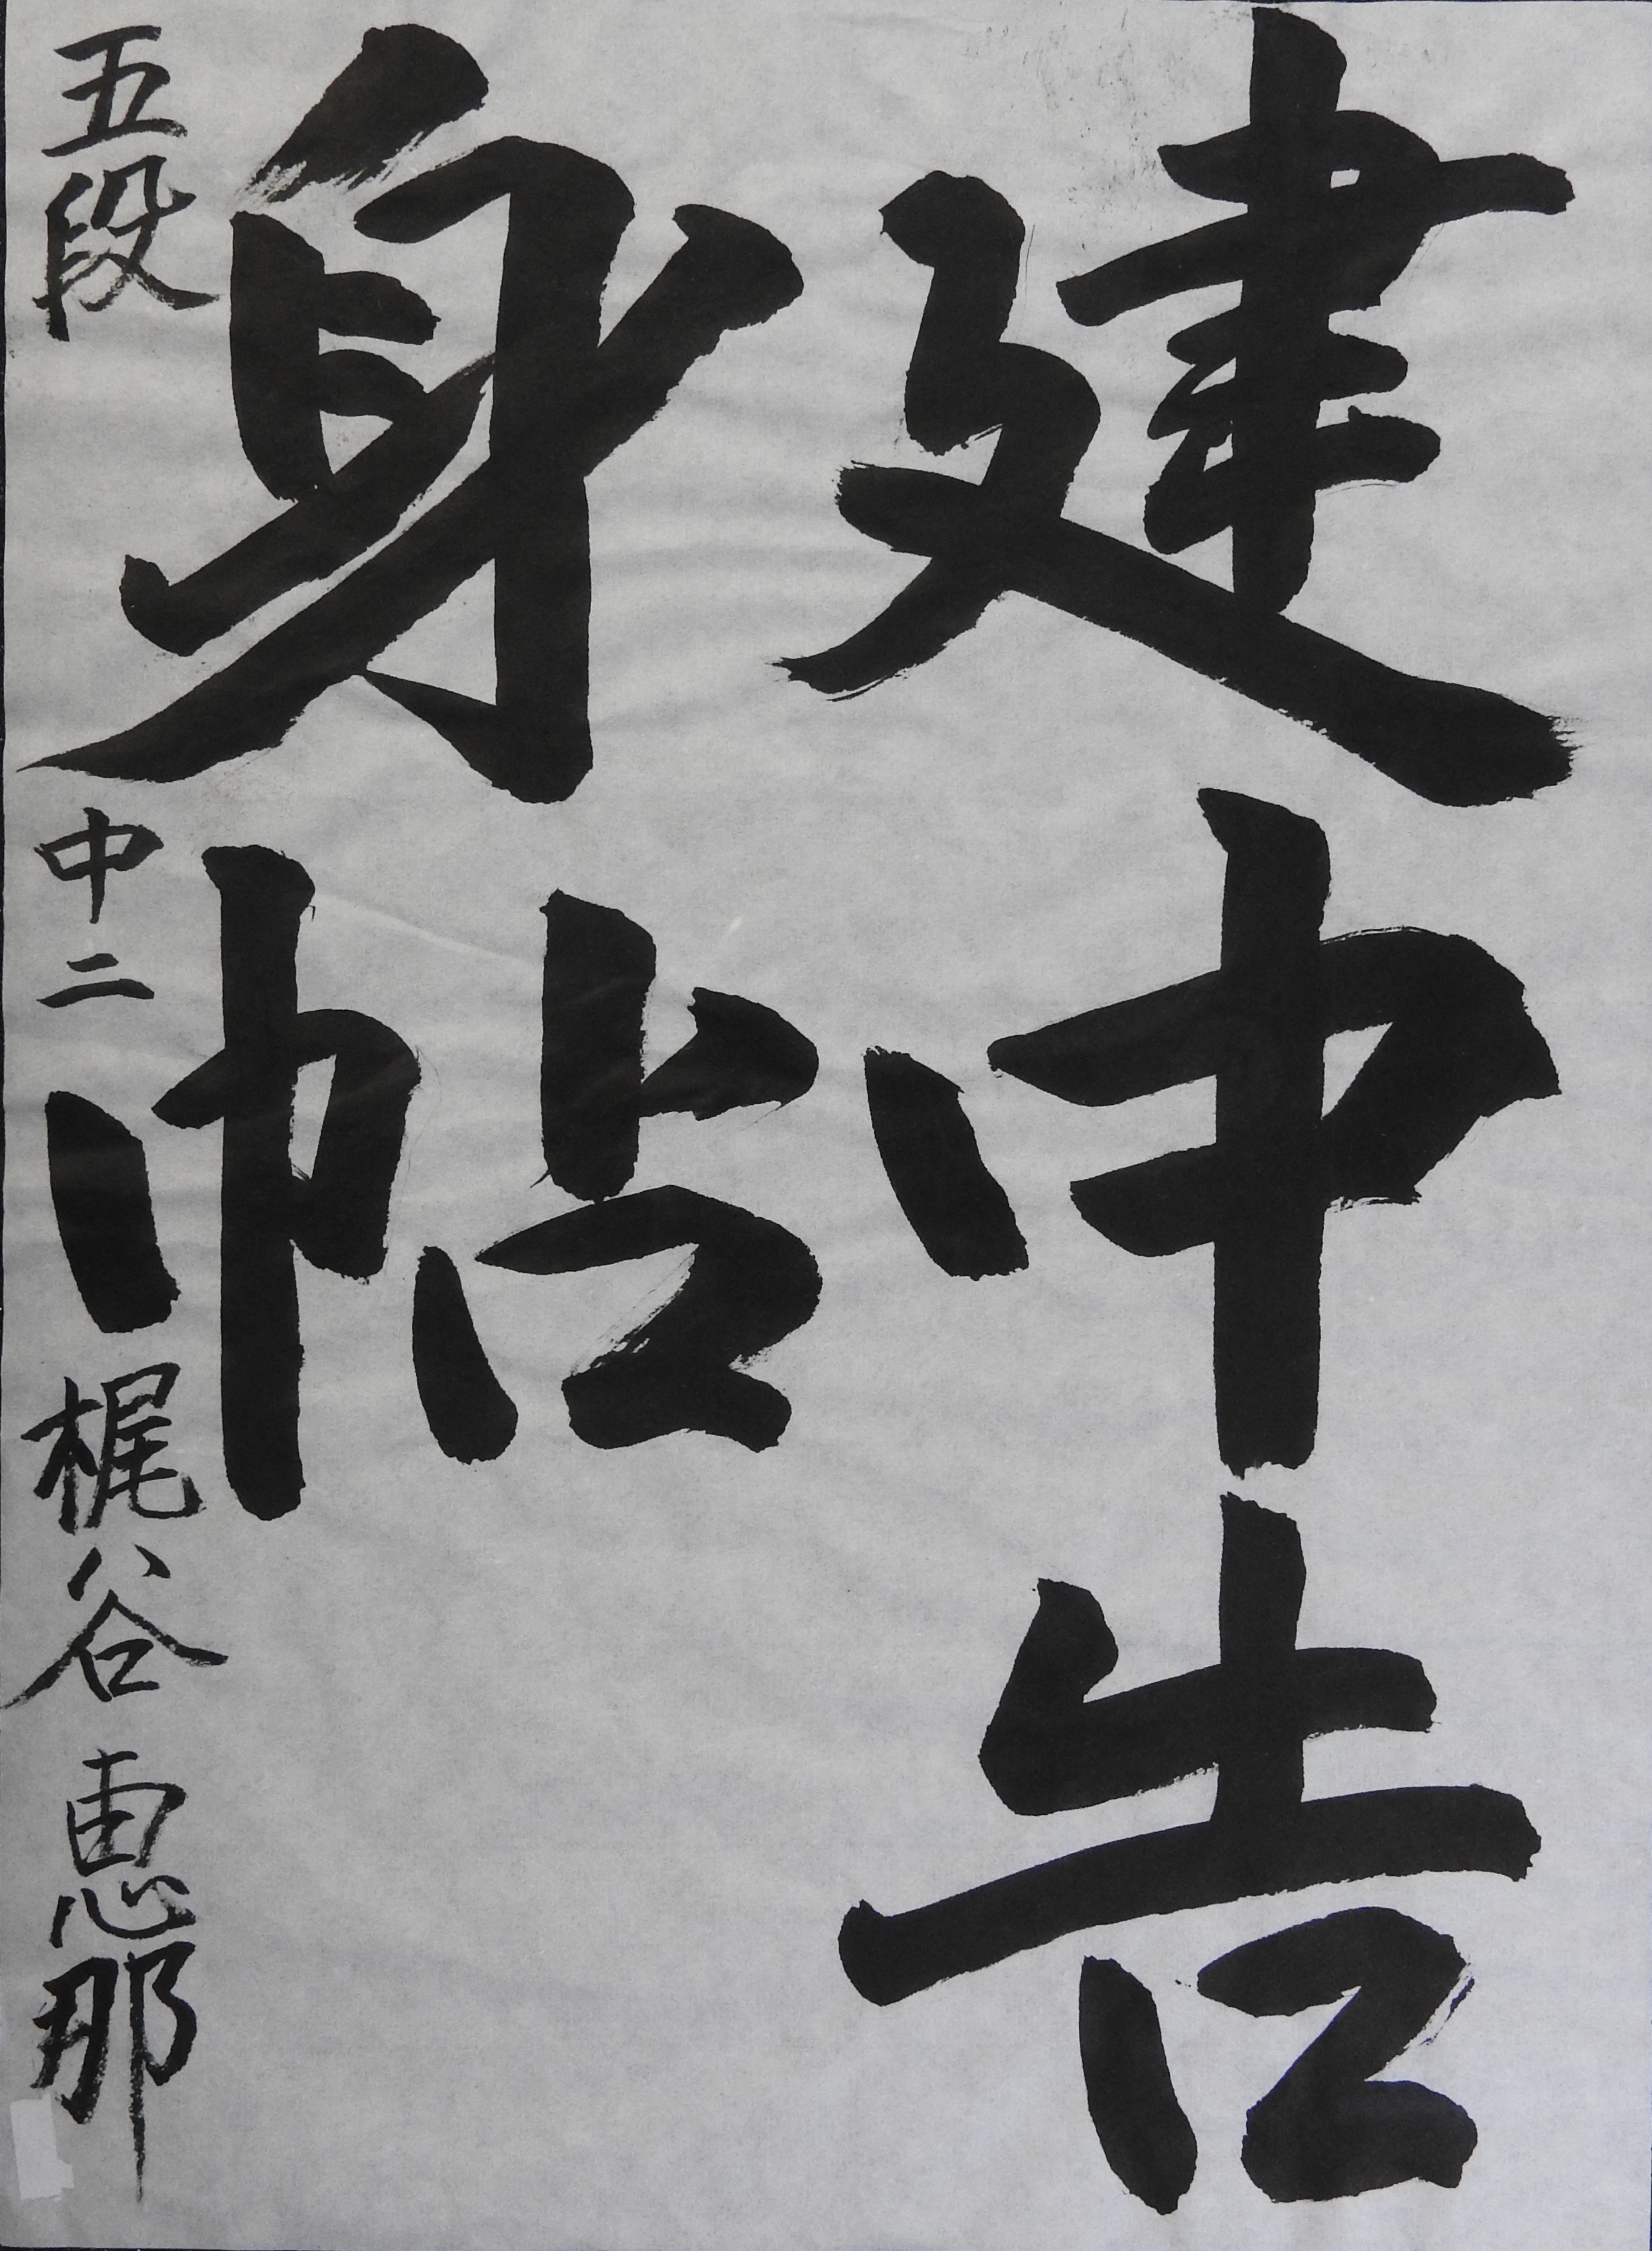 建中告
身帖
五段 中二 梶谷恵那